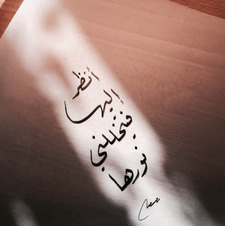 أنظر
إليها
فيتخللني
نورها